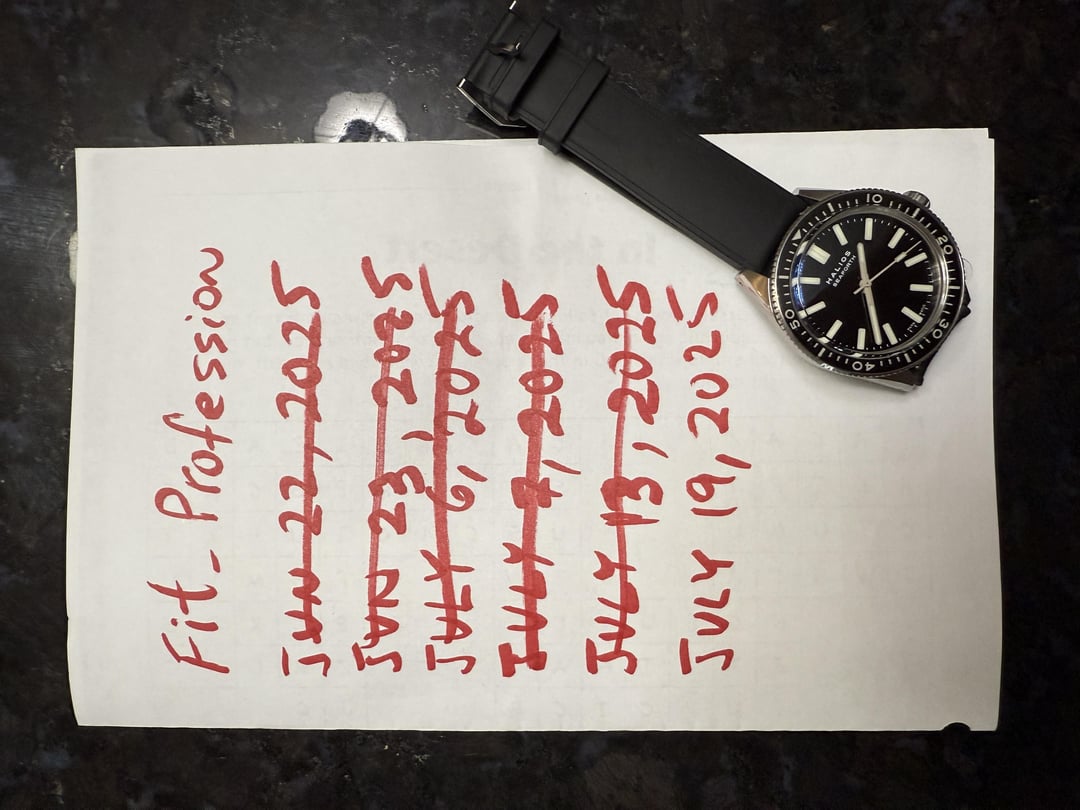 Fit_Profession
JUN 22, 2025
JUN 23, 2025
JULY 6, 2025
JULY 7, 2025
JULY 13, 2025
JULY 19, 2025
HALIOS
SEAFORTH
10
20
30
40
50